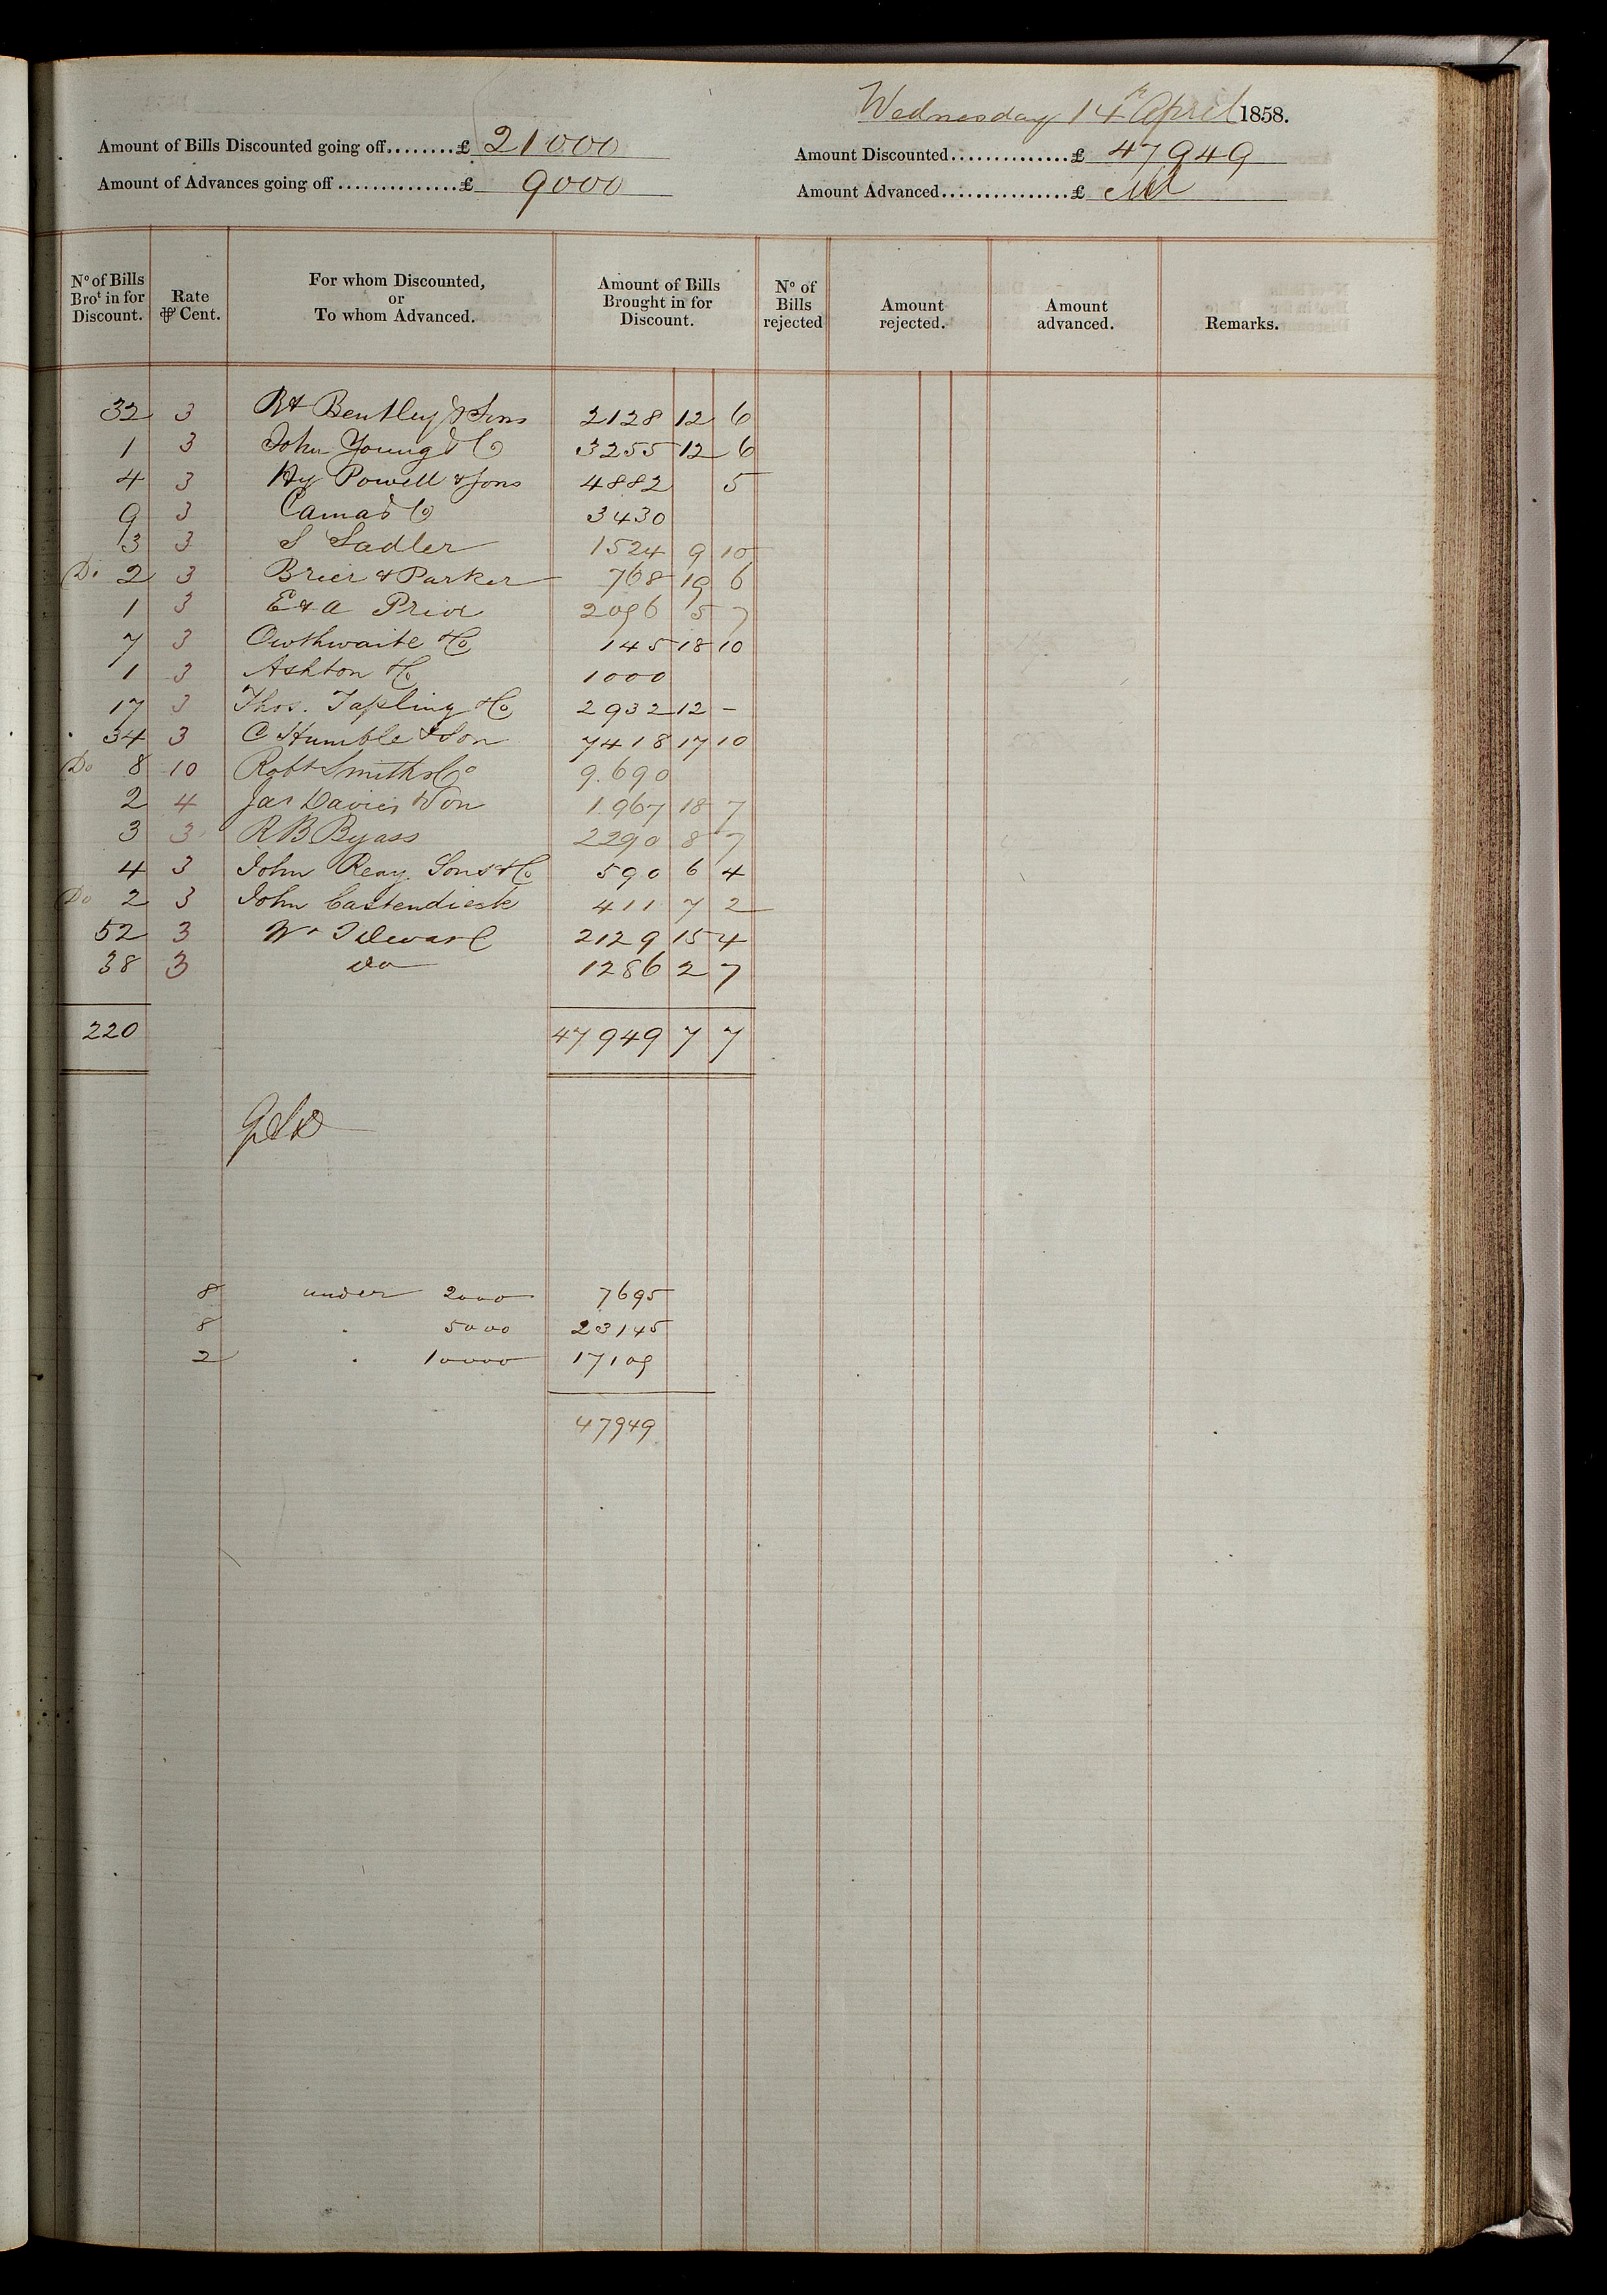 Wednesday 14th April 1858.
Amount of Bills Discounted going off........£ 21000
Amount Discounted..............£ 47949
Amount of Advances going off..............£ 9000
Amount Advanced...............£ Nil
No of Bills Brot in for Discount. Rate ⅌ Cent. For whom Discounted, or To whom Advanced. Amount of Bills Brought in for Discount. No of Bills rejected Amount rejected. Amount advanced. Remarks.
32 3 Rd Bentley & Sons 2128 12 6
1 3 John Young & Co 3255 12 6
4 3 Hy Powell & Sons 4882 5
9 3 Cama & Co 3430
3 3 S Sadler 1524 9 10
Do 2 3 Brier & Parker 768 19 6
1 3 E & A Prior 2096 5 7
7 3 Outhwaite & Co 145 18 10
1 3 Ashton & Co 1000
17 3 Thos. Tapling & Co 2932 12 -
34 3 C Humble & Son 7418 17 10
Do 8 10 Robt Smith & Co 9.690
2 4 Jas Davies & Son 1967 18 7
3 3 R B Byass 2290 8 7
4 3 John Reay Sons & Co 590 6 4
Do 2 3 John Castendieck 411 7 2
52 3 Wm 2129 15 4
38 3 do 1286 2 7
220 47949 7 7
8 under 2000 7695
8 . 5000 23145
2 . 10000 17109
47949